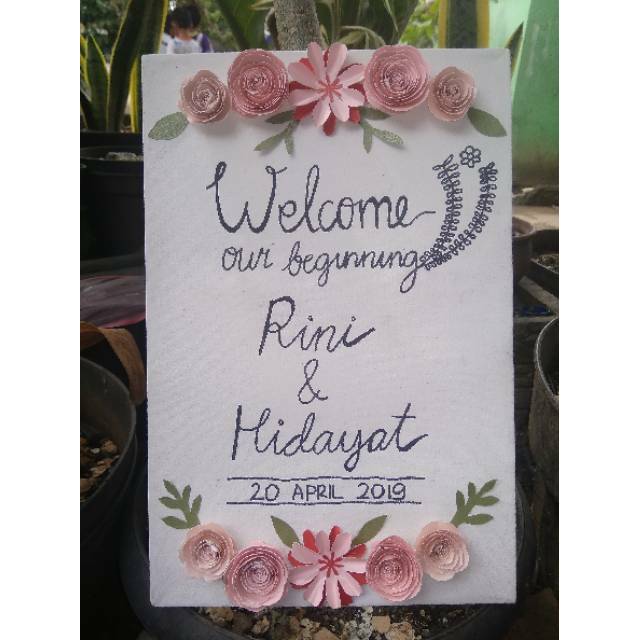 Welcome
our beginning
Rini
&
Hidayat
20 APRIL 2019